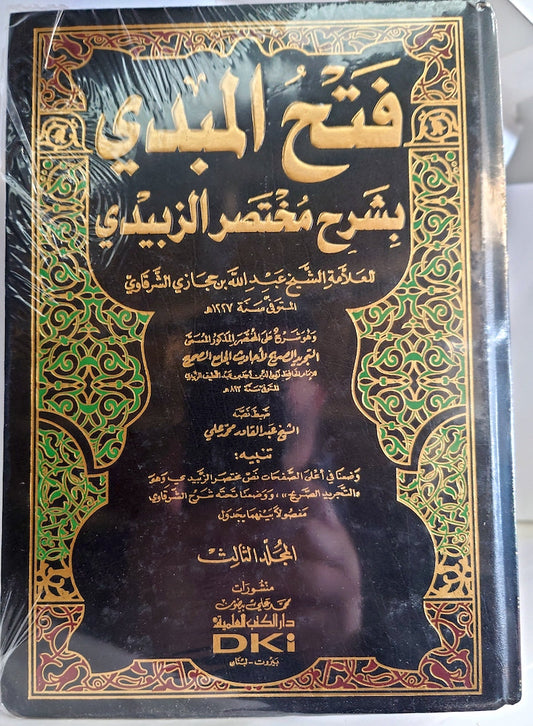 فَتْحُ المُبْدي
بِشَرحِ مُخْتَصَرِ الزبيدي
للعلّامة الشّيخ عبد اللّه بن حجازي الشّرقاوي
المتوفى سنة ١٢٢٧هـ
وهو شرح على المختصر المذكور المسمّى
التجريد الصريح لأحاديث الجامع الصحيح
للإمام الحافظ زين الدين أحمد بن عبد اللطيف الزبيدي
المتوفى سنة ٨٩٣ هـ
ضبط نصّه
الشيخ عبد القادر محمد علي
تنبيه:
وَضعنا في أعلى الصّفحات نصّ مختصر الزّبيدي وهو
«التجريد الصّريح»، ووضعنا تحته شرح الشّرقاوي
مفصولاً بينهما بجدول
المجلّد الثالث
منشورات
محمد علي بيضون
دار الكتب العلمية
DKi
بيروت - لبنان